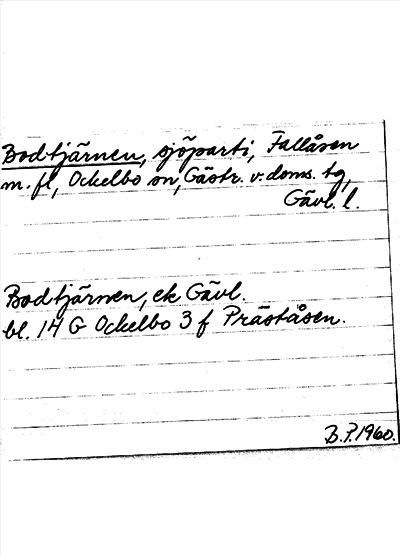 Bodtjärnen, sjöparti, Fallåsen
m. fl, Ockelbo sn, Gästr. v. doms. tg,
Gävl. l.
Bodtjärnen, ek Gävl.
bl. 14 G Ockelbo 3 f Präståsen.
B.P. 1960.